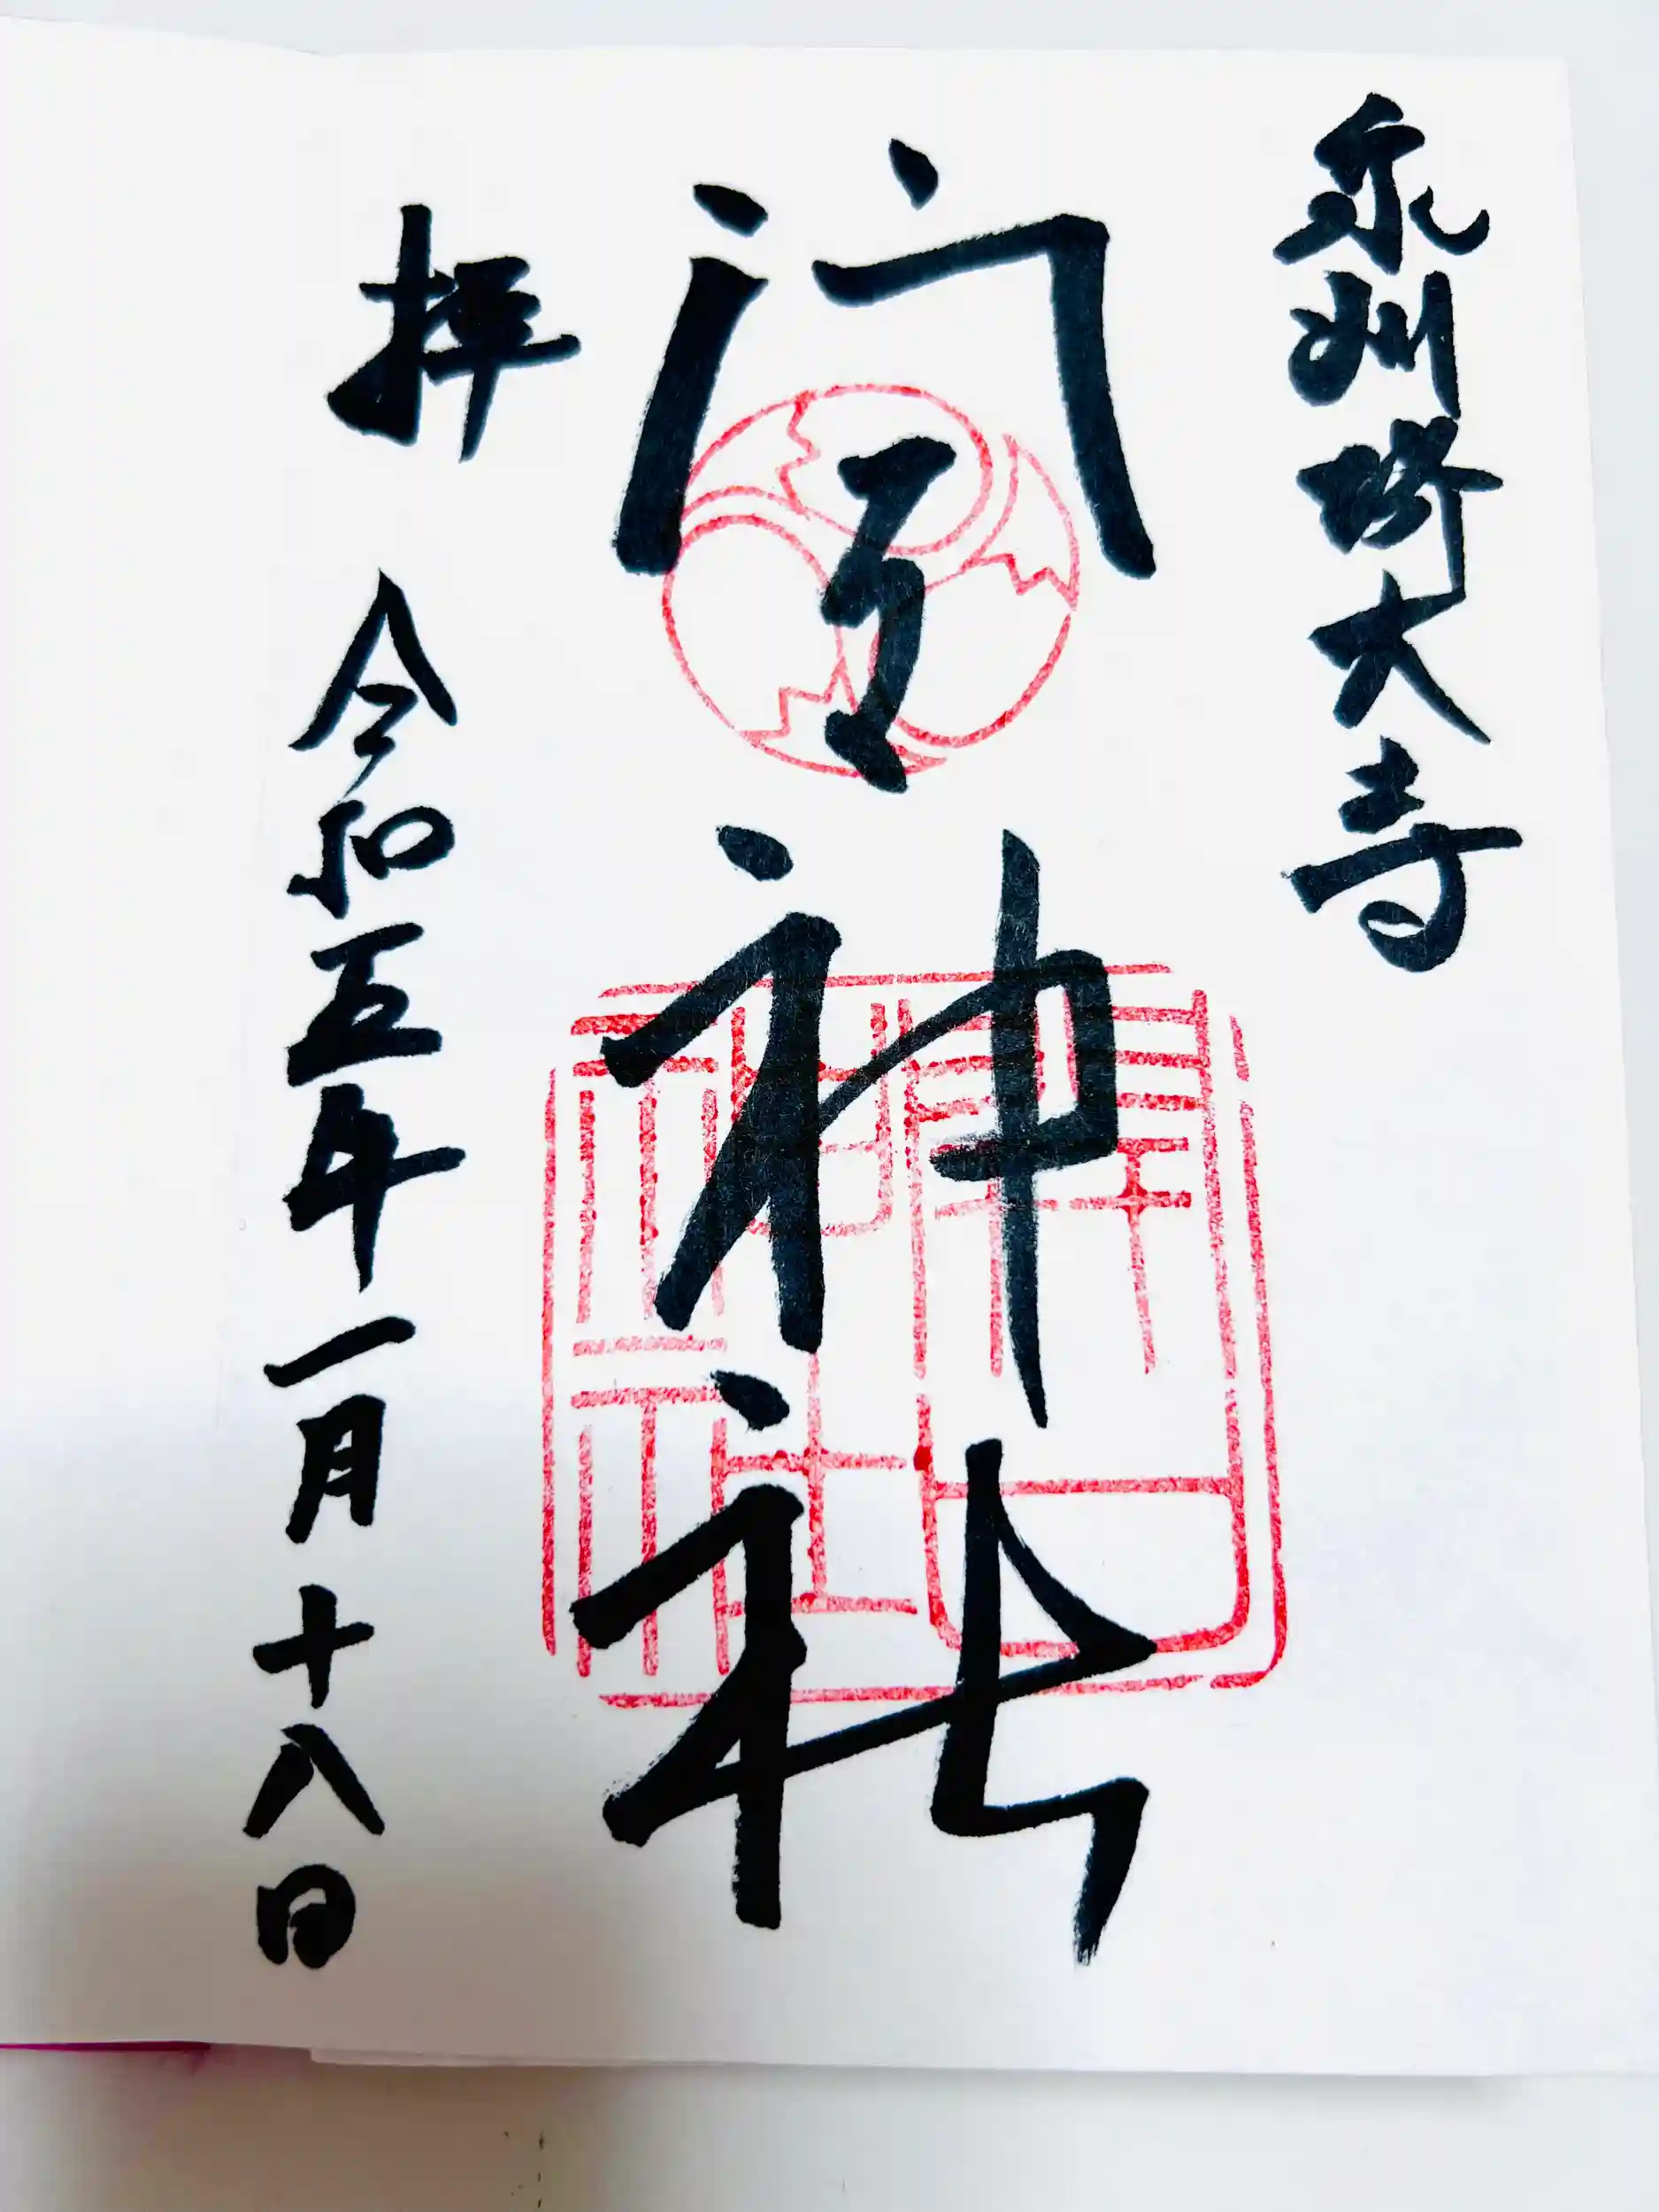 泉州堺大寺
開口神社
拝 令和五年一月十八日
開口神社